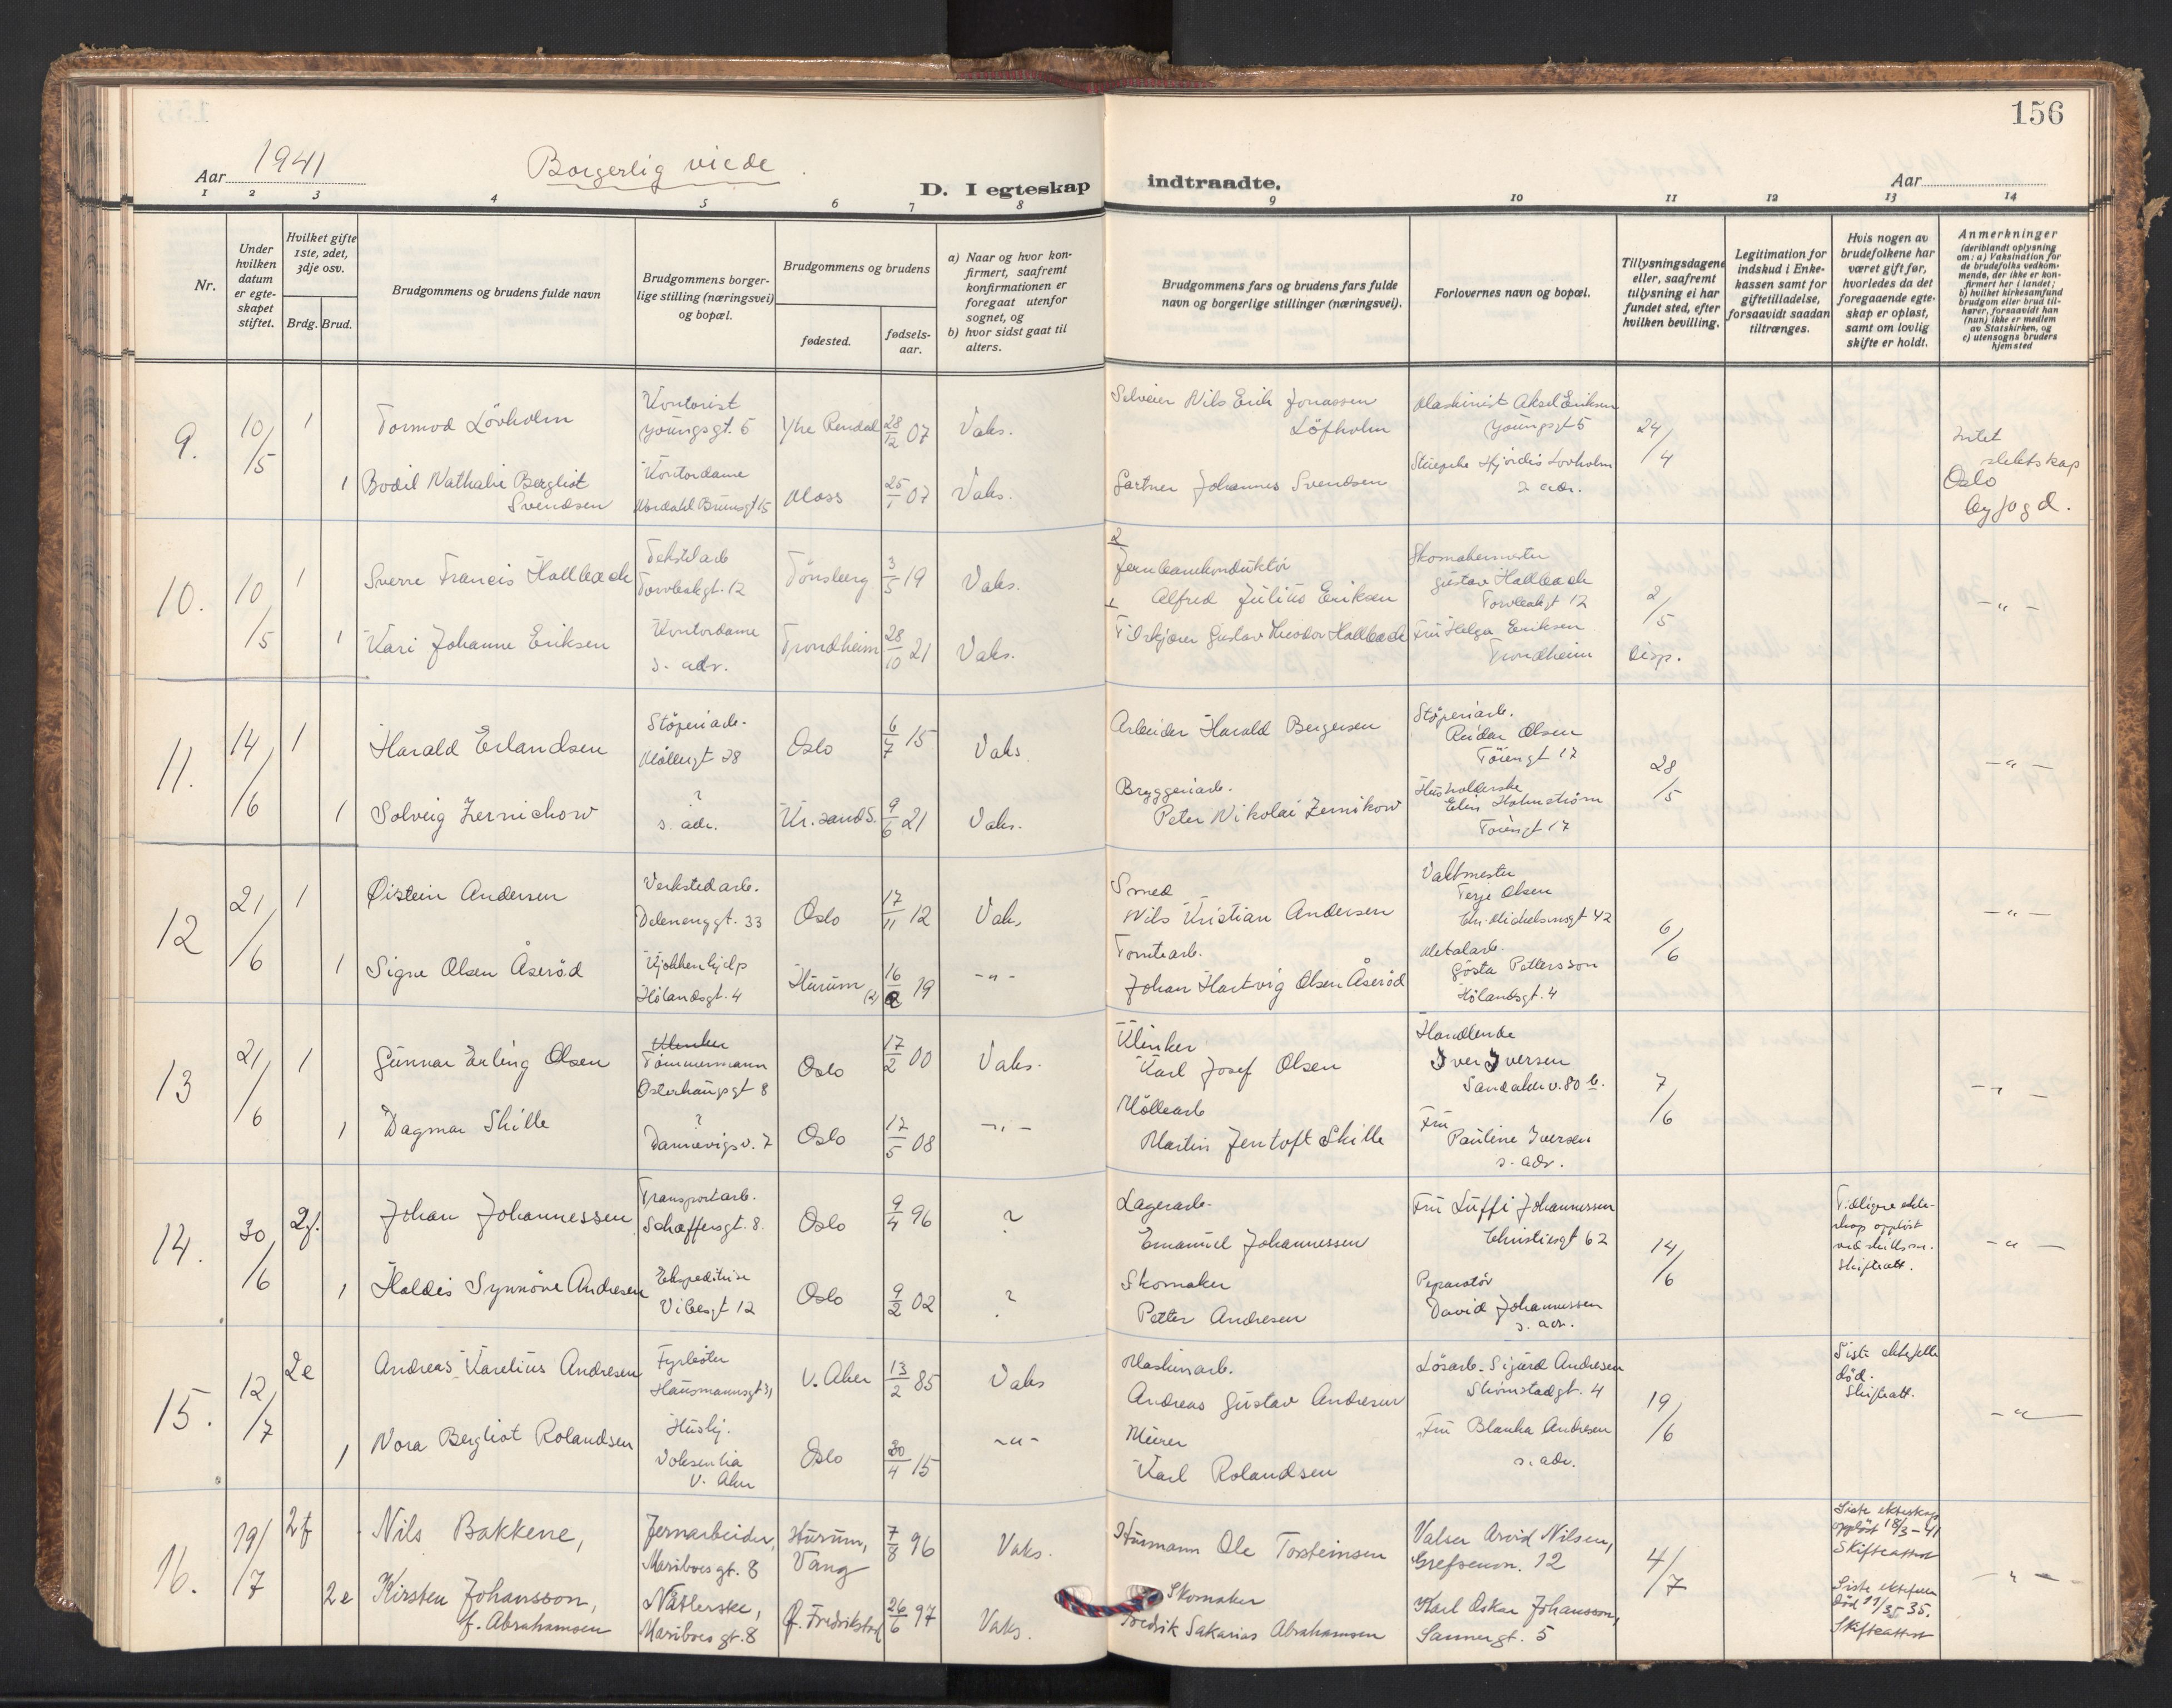 156
Aar 1941
Borgerlig viede
D. I egteskap indtraadte.
Aar
1 2 3 4 5 6 7 8 9 10 11 12 13 14
Nr.
Under hvilken datum er egte-skapet stiftet.
Hvilket gifte 1ste, 2det, 3dje osv.
Brdg. Brud.
Brudgommens og brudens fulde navn
Brudgommens borger-lige stilling (næringsvei) og bopæl.
Brudgommens og brudens
fødested.
fødsels-aar.
a) Naar og hvor kon-firmert, saafremt konfirmationen er foregaat utenfor sognet, og
b) hvor sidst gaat til alters.
Brudgommens fars og brudens fars fulde navn og borgerlige stillinger (næringsvei).
Forlovernes navn og bopæl.
Tillysningsdagene eller, saafremt tillysning ei har fundet sted, efter hvilken bevilling.
Legitimation for indskud i Enke-kassen samt for giftetilladelse, forsaavidt saadan tiltrænges.
Hvis nogen av brudefolkene har været gift før, hvorledes da det foregaaende egte-skap er opløst, samt om lovlig skifte er holdt.
Anmerkninger
(deriblandt oplysning om: a) Vaksination for de brudefolks vedkom-mende, der ikke er kon-firmert her i landet; b) hvilket kirkesamfund brudgom eller brud til-hører, forsaavidt han (hun) ikke er medlem av Statskirken, og c) utensogns bruders hjemsted
9. 10/5 1 Tormod Lövholm Kontorist Youngsgt. 5 Y/tre Rendal 28/12 07 Vaks. Selveier Nils Erik Jonassen Löfholm Maskinist Aksel Eriksen Youngsgt 5 24/4
1 Bodil Nathalie Bergliot Svendsen Kontordame Nordahl Brunsgt 15 Moss 25/1 07 Vaks. Gartner Johannes Svendsen Hjördis Lovholm s. adr. Intet slektskap Oslo byfogd.
10. 10/5 1 Sverre Francis Hallbach Tekstilarb Torvbakgt. 12 Tönsberg 3/5 19 Vaks. 2 Jernbanekonduktör Alfred Julius Eriksen Skomakermester Gustav Hallbach Torvbakgt 12 2/5
1 Kari Johanne Eriksen Kontordame s. adr. Trondheim 28/10 21 Vaks. 1 Tilskjærer Gustav Theodor Hallbach Fru Helga Eriksen Trondheim Disp. -"-
11. 14/6 1 Harald Erlandsen Stöperiarb. Möllergt 28 Oslo 6/7 15 Vaks Arbeider Harald Bergersen Stöperiarb. Reidar Olsen Töiengt 17 28/5
1 Solveig Zernichow ? s. adr. Kr.sand S. 9/6 21 Vaks. Bryggeriarb. Peter Nikolai Zernikow Husholderske Elin Holmström Töiengt 17 -"-
12 21/6 1 Øistein Andersen Verkstedarb. Delenenggt. 33 Oslo 17/11 12 Vaks Smed Nils Kristian Andersen Vaktmester Terje Olsen Chr. Michelsensgt 42 6/6
1 Signe Olsen Åseröd Kjökkenhjelp Hölandsgt. 4 Hurum 16/2 (2) 19 -"- Tomtearb. Johan Hartvig Olsen Åseröd Metalarb. Gösta Pettersson Hölandsgt. 4 -"-
13 21/6 1 Gunnar Erling Olsen Klinker Tömmermann Osterhausgt 8 Oslo 17/2 00 Vaks. Klinker Karl Josef Olsen Handlende Iver Iversen Sandaker v. 80 b. 7/6
1 Dagmar Skille ? Dannevigsv. 7 Oslo 17/5 08 -"- Möllearb Martin Jentoft Skille Fru Pauline Iversen s. adr. -"-
14. 30/6 2f. Johan Johannessen Transportarb. Schæffersgt. 8. Oslo 9/4 96 ? Lagerarb. Emanuel Johannessen Fru Luffi Johannessen Christiesgt 62 14/6 Tidligere ekte-skap opplöst ved skillsm. Skifteatt.
1 Haldis Synnöve Andresen Ekspeditrise Vibesgt 12 Oslo 9/2 02 ? Skomaker Petter Andresen Reparatör David Johannessen s. adr. -"-
15. 12/7 2e Andreas Karelius Andresen Fyrböter Hausmannsgt 31 V. Aker 13/2 85 Vaks Maskinarb. Andreas Gustav Andresen Lösarb. Sigurd Andresen Strömstadgt. 4 19/6 Siste ektefelle död. Skifteatt.
1 Nora Bergliot Rolandsen Huslj. Voksenlia V. Aker Oslo 30/4 15 -"- Murer Karl Rolandsen Fru Blanka Andresen s. adr. -"-
16. 19/7 2f Nils Bakkene, Jernarbeider, Mariboesgt. 8 Hurum, Vang 7/8 96 Vaks. Husmann Ole Torsteinsen Valser Arvid Nilsen, Grefsenvn. 12 4/7 Siste ekteskap opplöst 18/3-41 Skifteattest
2e Kirsten Johansson, f. Abrahamsen Nåtlerske, Mariboesgt. 8 Gl. Fredrikstad 26/6 97 Vaks. Skomaker Fredrik Sakarias Abrahamsen Karl Oskar Johansson, Sannergt. 5 Siste ektefelle död 35. Skifteattest -"-